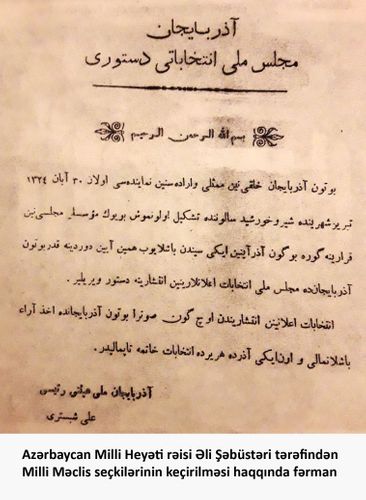 آذربایجان
مجلس ملی انتخاباتی دستوری
بسم الله الرحمن الرحیم
بوتون آذربایجان خلقی‌نین ممثلی واراده‌سنین نماینده‌سی اولان ۳۰ آبان ۱۳۲٤
تبریز شهرینده شیر و خورشید سالوننده تشکیل اولونموش بویوک مؤسسلر مجلسی‌نین
قرارینه گوره بو گون آذرآیینین ایکی سیندن باشلایوب همین آیین دوردینه قدر بوتون
آذربایجانده مجلس ملی انتخابات اعلانلارینین انتشارینه دستور ویریلیر.
انتخابات اعلانینن انتشاریندن اوچ گون صونرا بوتون آذربایجانده اخذ آراء
باشلانمالی و اون‌ایکی آذرده هریرده انتخابات خاتمه تاپمالیدر.
آذربایجان ملی هیئتی رئیسی
علی شبستری
Azərbaycan Milli Heyəti rəisi Əli Şəbüstəri tərəfindən
Milli Məclis seçkilərinin keçirilməsi haqqında fərman